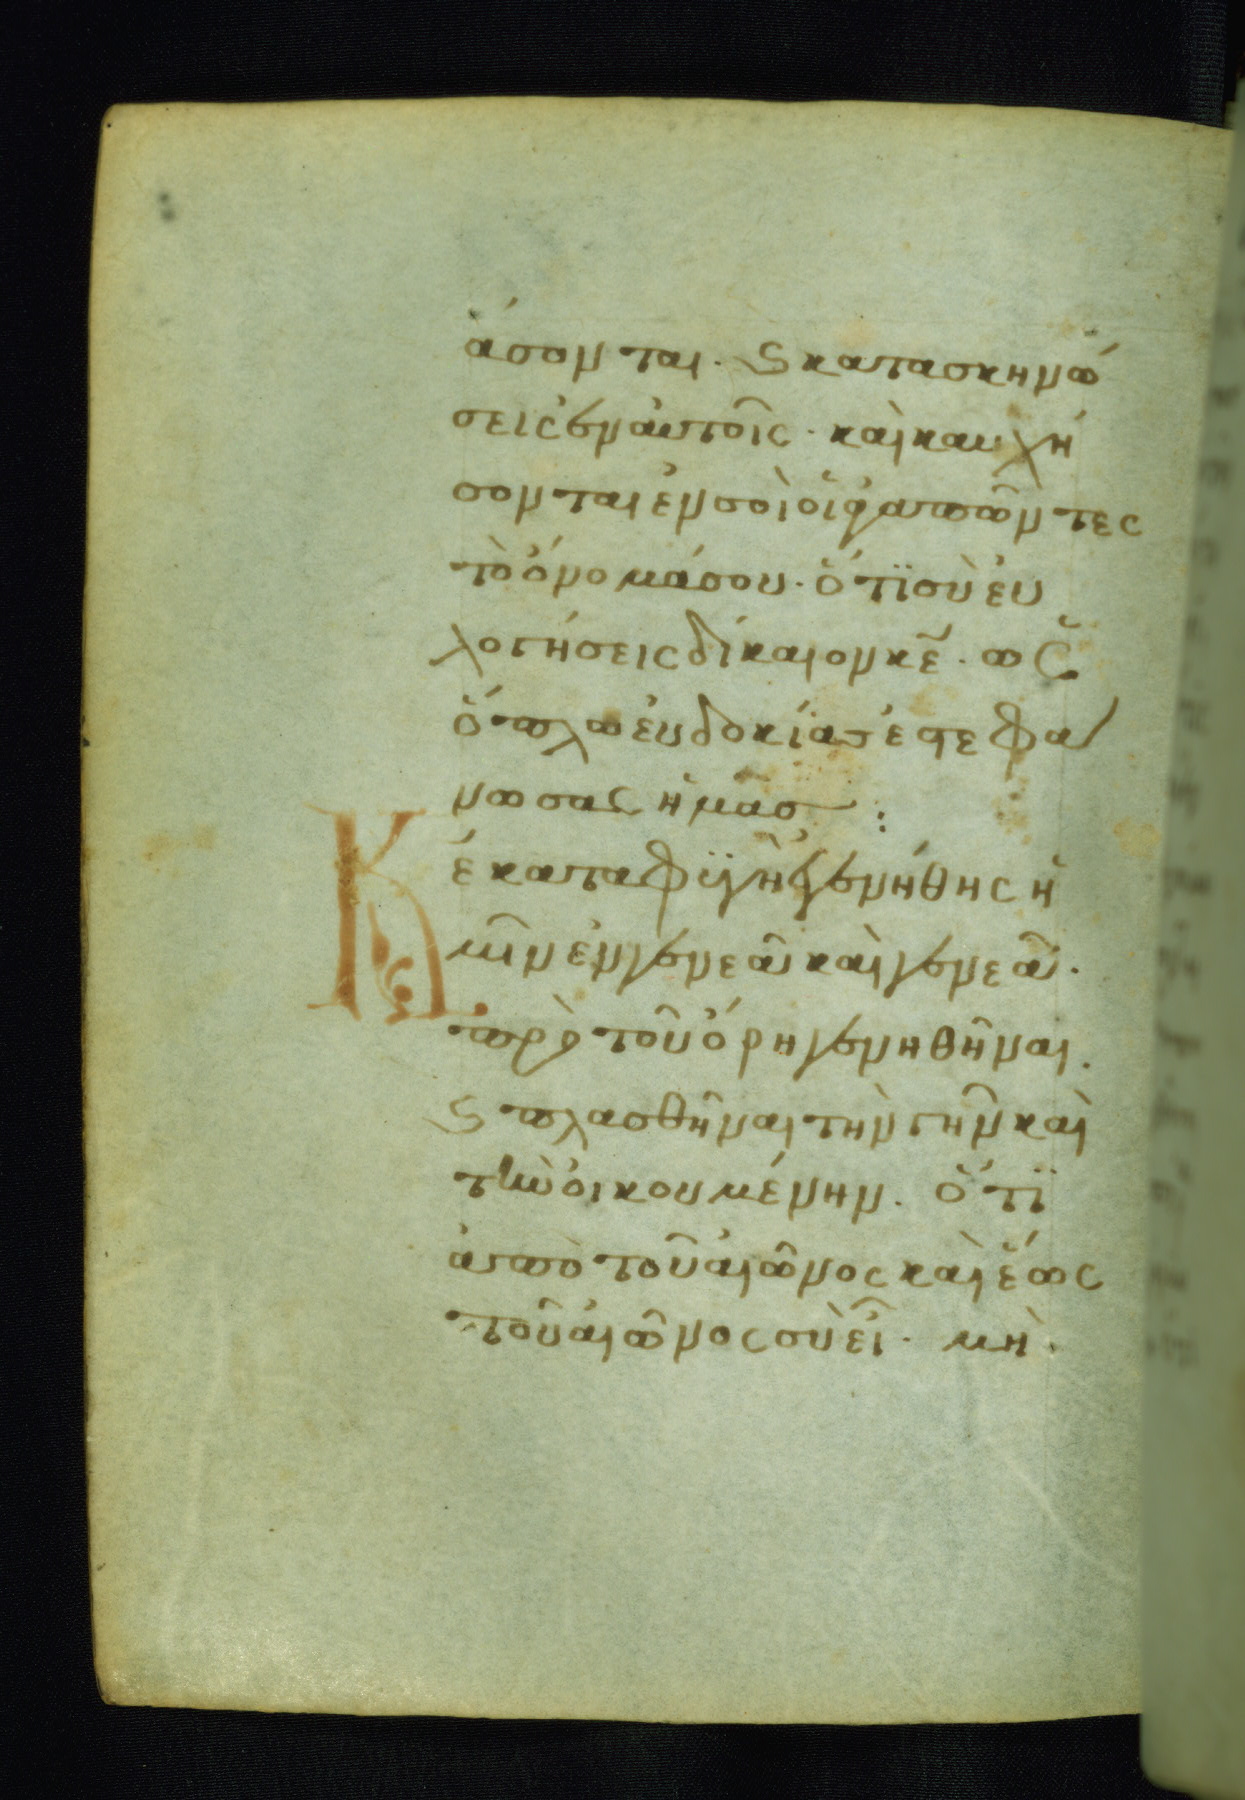 άσονται · ϗ κατασκηνώ
σεις ἐν αὐτοῖς · καὶ καυχή
σονται ἐν σοὶ οἱ ἀγαπῶντες
τὸ ὄνομά σου · ὅτϊ σὺ εὐ
λογήσεις δίκαιον κε̅ · ὡς
ὅπλω εὐδοκίας ἐστεφά
νωσας ἡμᾶς :
Κε̅ καταφϋγὴ ἐγενήθης ἡ
μῖν ἐν γενεᾶ καὶ γενεᾶ ·
πρὸ τοῦ ὄρη γενηθῆναι ·
ϗ πλασθῆναι τὴν γῆν καὶ
τὴν οἰκουμένην · ὅτϊ
ἀπὸ τοῦ αἰῶνος καὶ ἕως
τοῦ αἰῶνος σὺ εἶ · μὴ